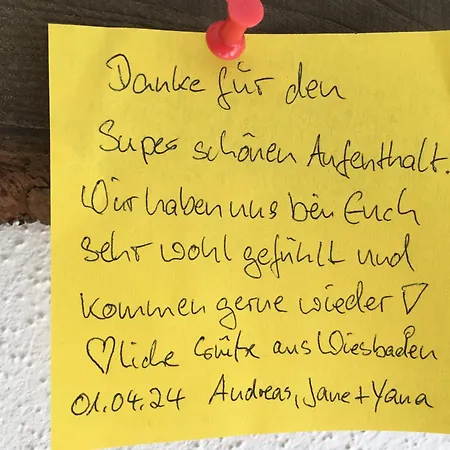 Danke für den
Super schönen Aufenthalt.
Wir haben uns bei Euch
sehr wohl gefühlt und
kommen gerne wieder ♡
♡liche Grüße aus Wiesbaden
01.04.24 Andreas, Jane + Yana